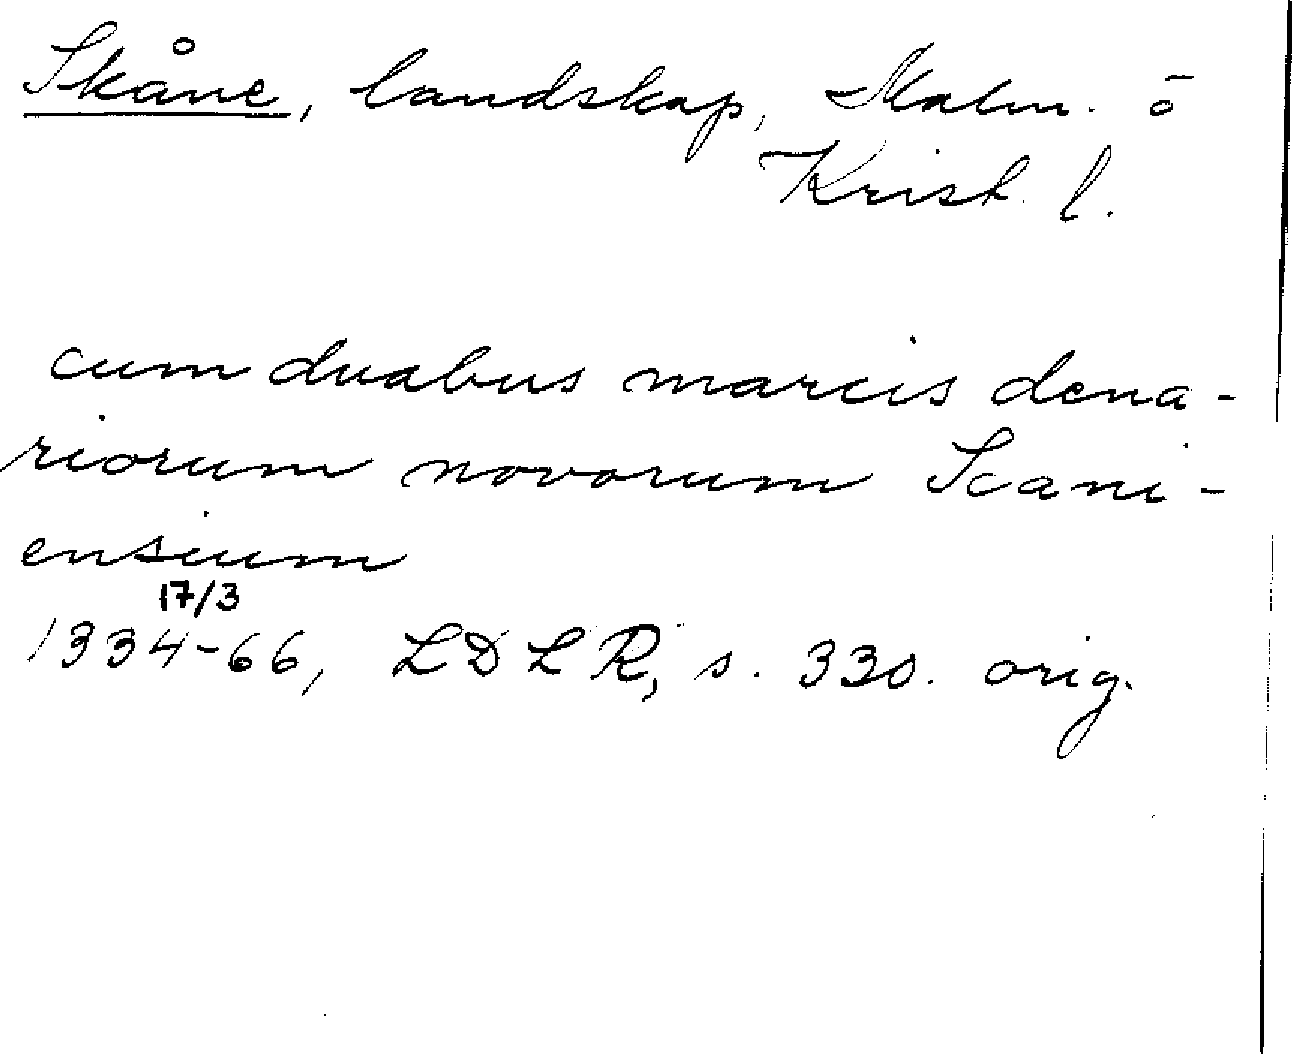 Skåne, landskap, Malm. o
Krist. l.
cum duabus marcis dena-
riorum novorum Scani-
ensium
17/3
1334-66, LDLR, s. 330. orig.